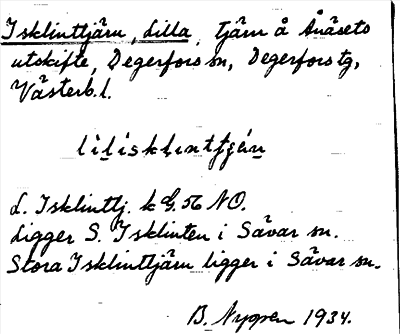 Isklinttjärn, Lilla, tjärn å Ånäsets
utskifte, Degerfors sn, Degerfors tg,
Västerb. l.
L. Isklinttj. k G. 56 NO.
Ligger S. Isklinten i Sävar sn.
Stora Isklinttjärn ligger i Sävar sn.
B. Nygren 1934.